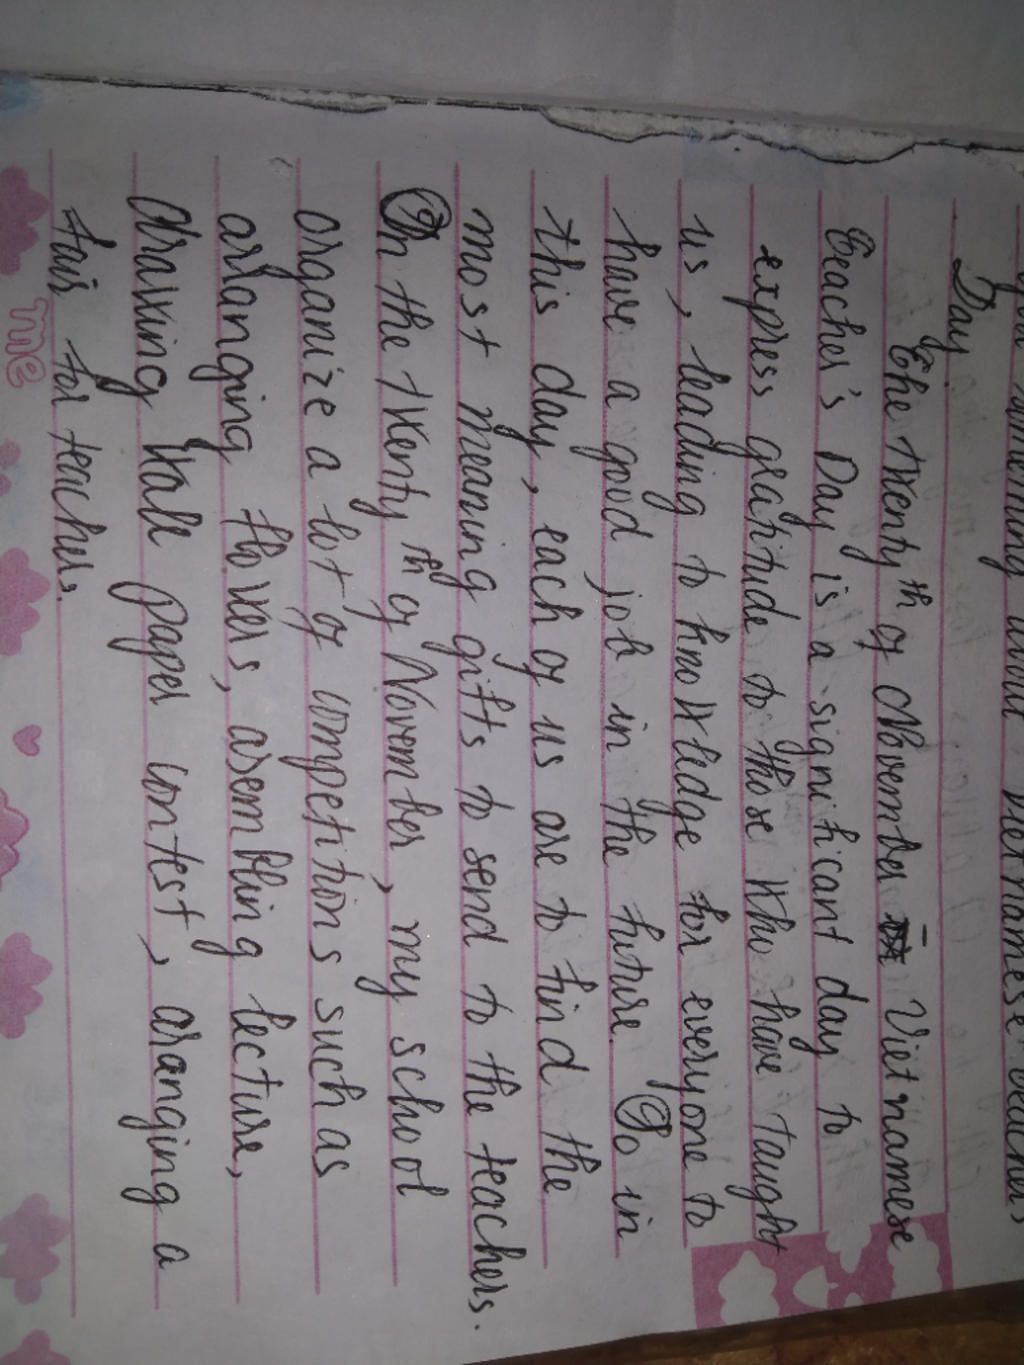 something about Vietnamese Teacher's
Day
The twenty th of November - Vietnamese
Teacher's Day is a significant day to
express gratitude to those who have taught
us, leading to knowledge for everyone to
have a good job in the future. So in
this day, each of us are to find the
most meaning gifts to send to the teachers.
On the twenty th of November, my school
organize a lot of competitions such as
arranging flowers, asembling lecture,
drawing wall paper contest, aranging a
fair for teachers.
me